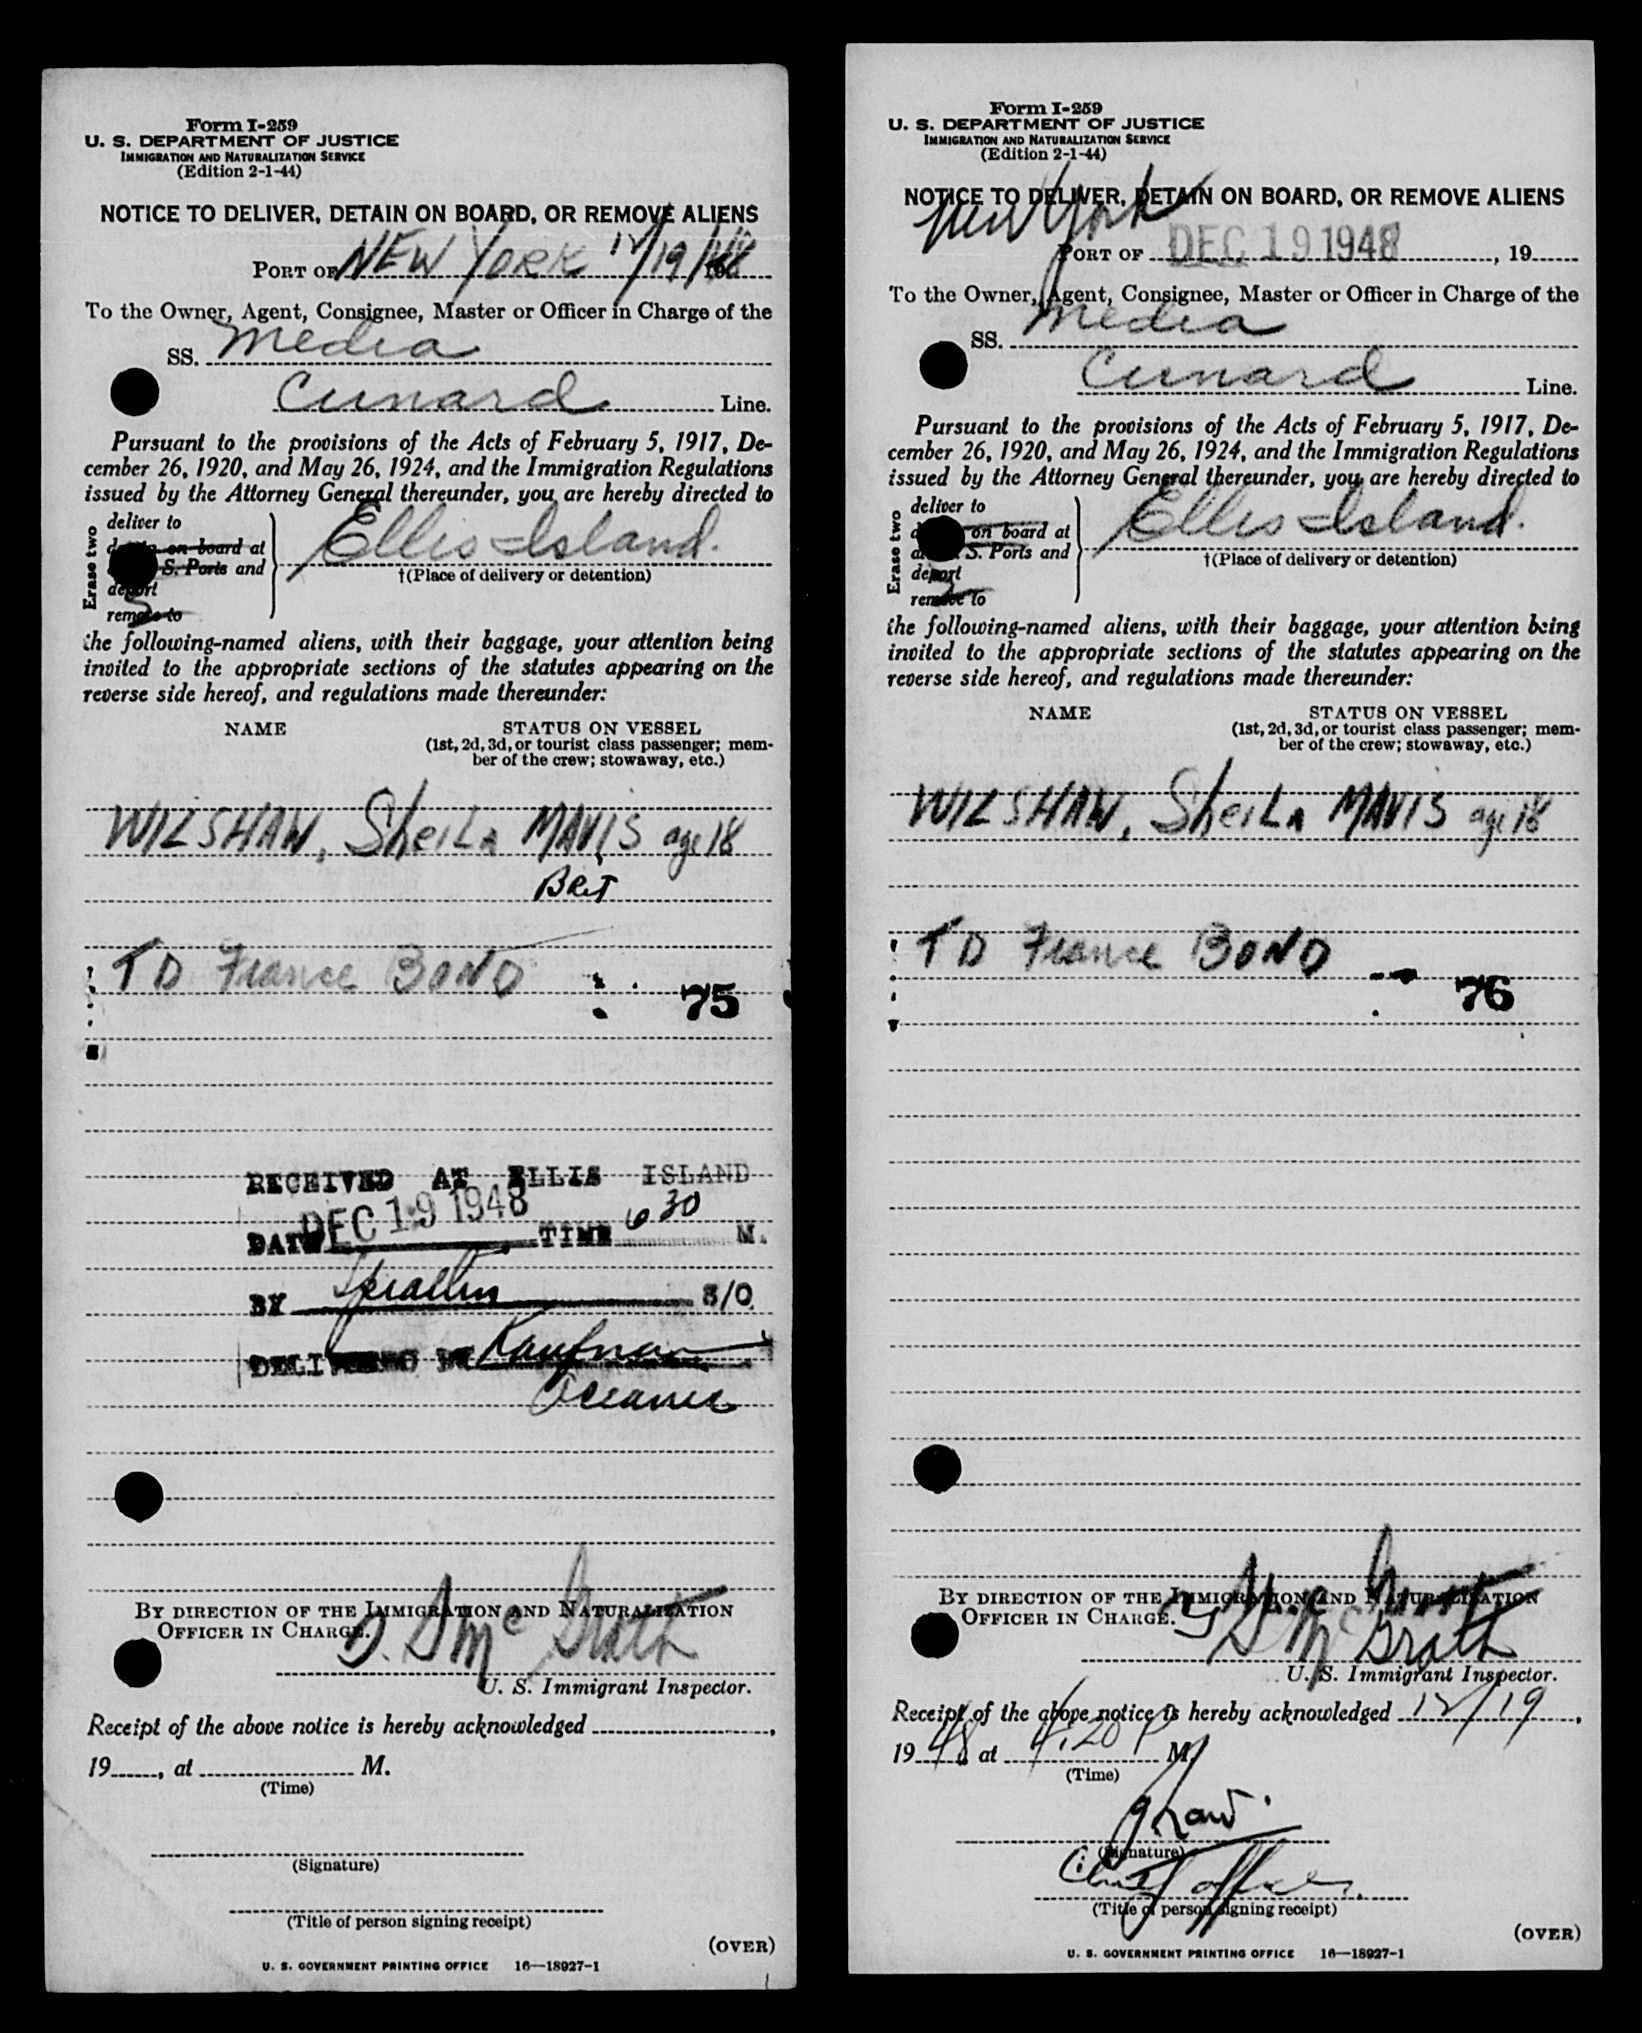 Form I-259
U. S. DEPARTMENT OF JUSTICE
IMMIGRATION AND NATURALIZATION SERVICE
(Edition 2-1-44)
NOTICE TO DELIVER, DETAIN ON BOARD, OR REMOVE ALIENS
PORT OF NEW YORK 12/19/48
To the Owner, Agent, Consignee, Master or Officer in Charge of the
SS. Media
Cunard Line.
Pursuant to the provisions of the Acts of February 5, 1917, De-
cember 26, 1920, and May 26, 1924, and the Immigration Regulations
issued by the Attorney General thereunder, you are hereby directed to
Erase two
deliver to
on board at
S. Ports and
deport
remove to
Ellis Island.
†(Place of delivery or detention)
the following-named aliens, with their baggage, your attention being
invited to the appropriate sections of the statutes appearing on the
reverse side hereof, and regulations made thereunder:
NAME STATUS ON VESSEL
(1st, 2d, 3d, or tourist class passenger; mem-
ber of the crew; stowaway, etc.)
WILSHAW, Sheila MAVIS age 18
Brit
TD France BOND
75
RECEIVED AT ELLIS ISLAND
DATE DEC 19 1948 TIME 6 30 M.
BY S/O
DELIVERED BY Kaufman
Oceanic
BY DIRECTION OF THE IMMIGRATION AND NATURALIZATION
OFFICER IN CHARGE.
D. S McGrath
U. S. Immigrant Inspector.
Receipt of the above notice is hereby acknowledged ,
19 , at M.
(Time)
(Signature)
(Title of person signing receipt)
(OVER)
U. S. GOVERNMENT PRINTING OFFICE 16—18927-1
Form I-259
U. S. DEPARTMENT OF JUSTICE
IMMIGRATION AND NATURALIZATION SERVICE
(Edition 2-1-44)
NOTICE TO DELIVER, DETAIN ON BOARD, OR REMOVE ALIENS
New York
PORT OF DEC 19 1948 , 19
To the Owner, Agent, Consignee, Master or Officer in Charge of the
SS. Media
Cunard Line.
Pursuant to the provisions of the Acts of February 5, 1917, De-
cember 26, 1920, and May 26, 1924, and the Immigration Regulations
issued by the Attorney General thereunder, you are hereby directed to
Erase two
deliver to
on board at
S. Ports and
deport
remove to
Ellis Island.
†(Place of delivery or detention)
the following-named aliens, with their baggage, your attention being
invited to the appropriate sections of the statutes appearing on the
reverse side hereof, and regulations made thereunder:
NAME STATUS ON VESSEL
(1st, 2d, 3d, or tourist class passenger; mem-
ber of the crew; stowaway, etc.)
WILSHAW, Sheila MAVIS age 18
TD France BOND
76
BY DIRECTION OF THE IMMIGRATION AND NATURALIZATION
OFFICER IN CHARGE.
S McGrath
U. S. Immigrant Inspector.
Receipt of the above notice is hereby acknowledged 12/19 ,
19 48 at 4:20 P M.
(Time)
(Signature)
Chief Officer.
(Title of person signing receipt)
(OVER)
U. S. GOVERNMENT PRINTING OFFICE 16—18927-1